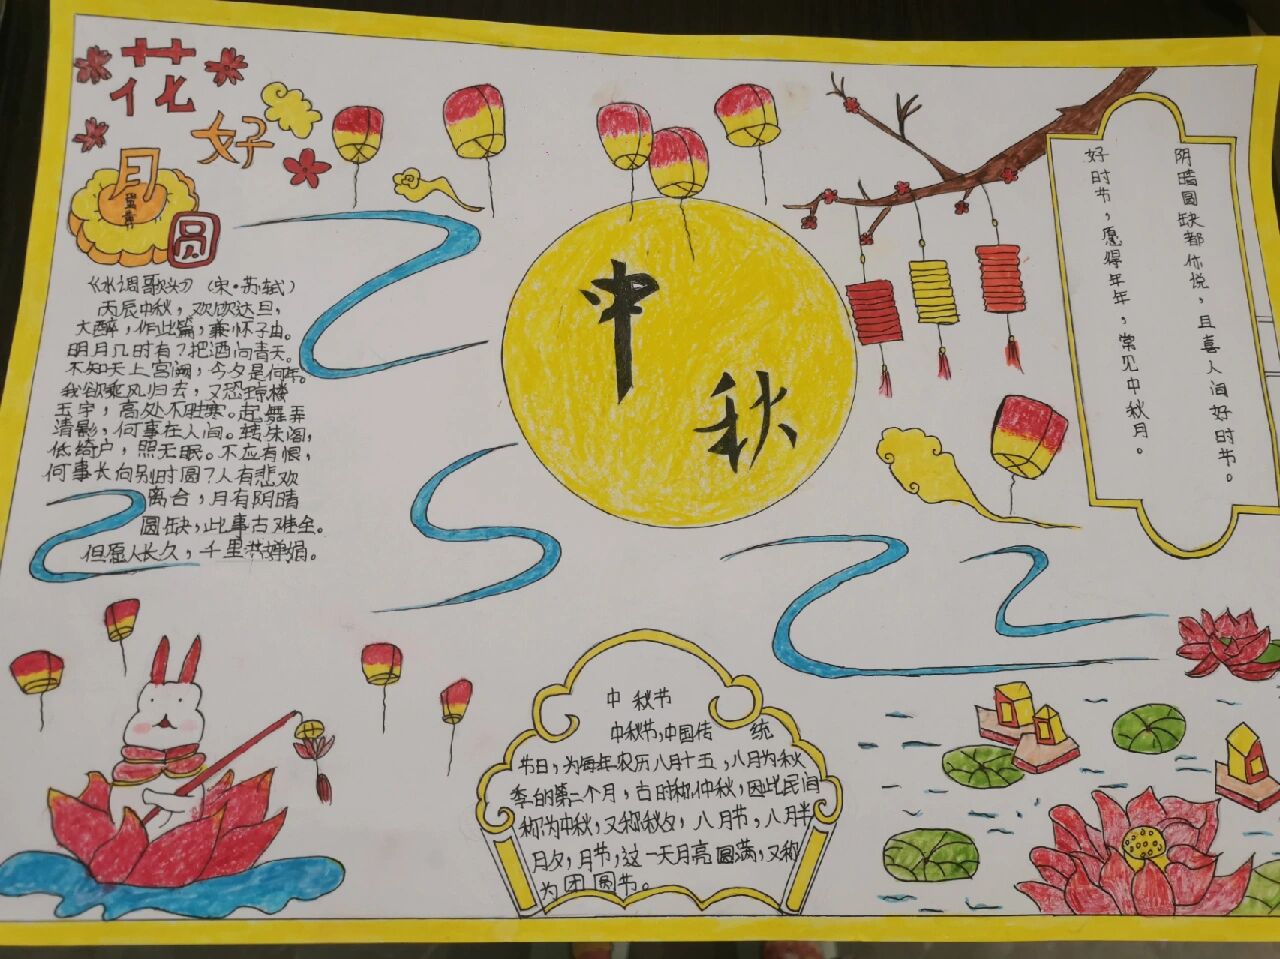 花好
月圆
蛋黄
《水调歌头》（宋·苏轼）
丙辰中秋，欢饮达旦，
大醉，作此篇，兼怀子由。
明月几时有？把酒问青天。
不知天上宫阙，今夕是何年。
我欲乘风归去，又恐琼楼
玉宇，高处不胜寒。起舞弄
清影，何事在人间。转朱阁，
低绮户，照无眠。不应有恨，
何事长向别时圆？人有悲欢
离合，月有阴晴
圆缺，此事古难全。
但愿人长久，千里共婵娟。
中秋
阴晴圆缺都你说，且喜人间好时节。
好时节，愿得年年，常见中秋月。
中秋节
中秋节，中国传 统
节日，为每年农历八月十五，八月为秋
季的第二个月，古时称仲秋，因此民间
称为中秋，又称秋夕，八月节，八月半
月夕，月节，这一天月亮圆满，又称
为团圆节。